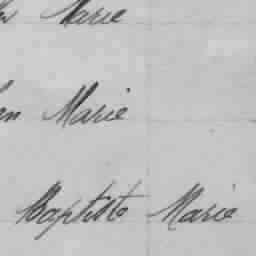 Marie
Marie
Baptiste Marie